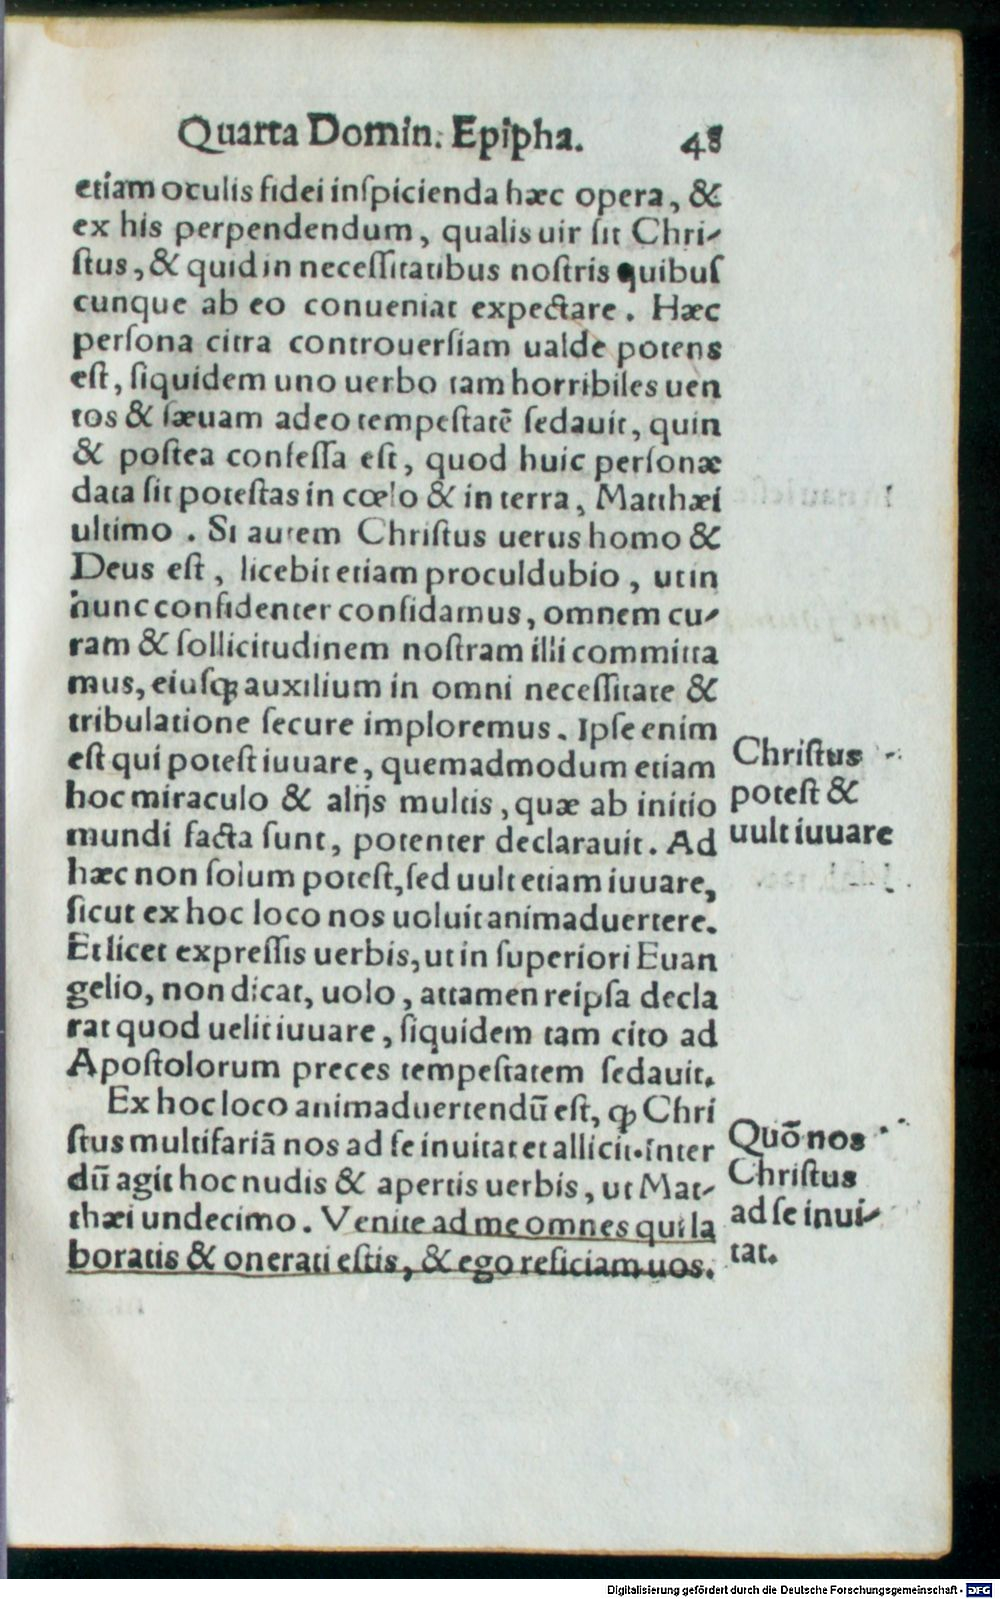 Quarta Domin. Epipha. 48
etiam oculis fidei inſpicienda hæc opera, &
ex his perpendendum, qualis uir ſit Chri-
ſtus, & quid in neceſſitatibus noſtris quibuſ
cunque ab eo conueniat expectare. Hæc
perſona citra controuerſiam ualde potens
eſt, ſiquidem uno uerbo tam horribiles uen
tos & ſæuam adeo tempeſtatē ſedauit, quin
& poſtea confeſſa eſt, quod huic perſonæ
data ſit poteſtas in cœlo & in terra, Matthæi
ultimo. Si autem Chriſtus uerus homo &
Deus eſt, licebit etiam proculdubio, ut in
hunc confidenter confidamus, omnem cu-
ram & ſollicitudinem noſtram illi committa
mus, eiuſqꝫ auxilium in omni neceſſitate &
tribulatione ſecure imploremus. Ipſe enim
eſt qui poteſt iuuare, quemadmodum etiam
hoc miraculo & alijs multis, quæ ab initio
mundi facta ſunt, potenter declarauit. Ad
hæc non ſolum poteſt, ſed uult etiam iuuare,
ſicut ex hoc loco nos uoluit animaduertere.
Et licet expreſſis uerbis, ut in ſuperiori Euan
gelio, non dicat, uolo, attamen reipſa decla
rat quod uelit iuuare, ſiquidem tam cito ad
Apoſtolorum preces tempeſtatem ſedauit.
Ex hoc loco animaduertendū eſt, ꝙ Chri
ſtus multifariā nos ad ſe inuitat et allicit. Inter
dū agit hoc nudis & apertis uerbis, ut Mat-
thæi undecimo. Venite ad me omnes qui la
boratis & onerati eſtis, & ego reficiam uos.
Chriſtus
poteſt &
uult iuuare
Quō nos
Chriſtus
ad ſe inui-
tat.
Digitalisierung gefördert durch die Deutsche Forschungsgemeinschaft - DFG